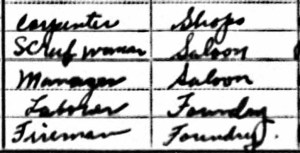 Carpenter Shops
Scrub woman Saloon
Manager Saloon
Laborer Foundry
Fireman Foundry.